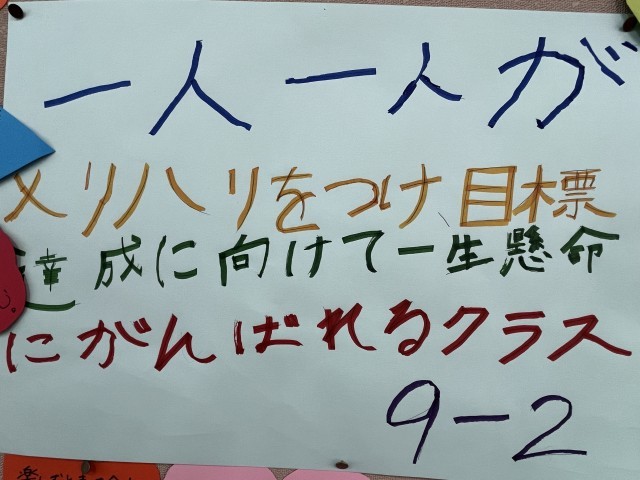 一人一人が
メリハリをつけ目標
達成に向けて一生懸命
にがんばれるクラス
9-2